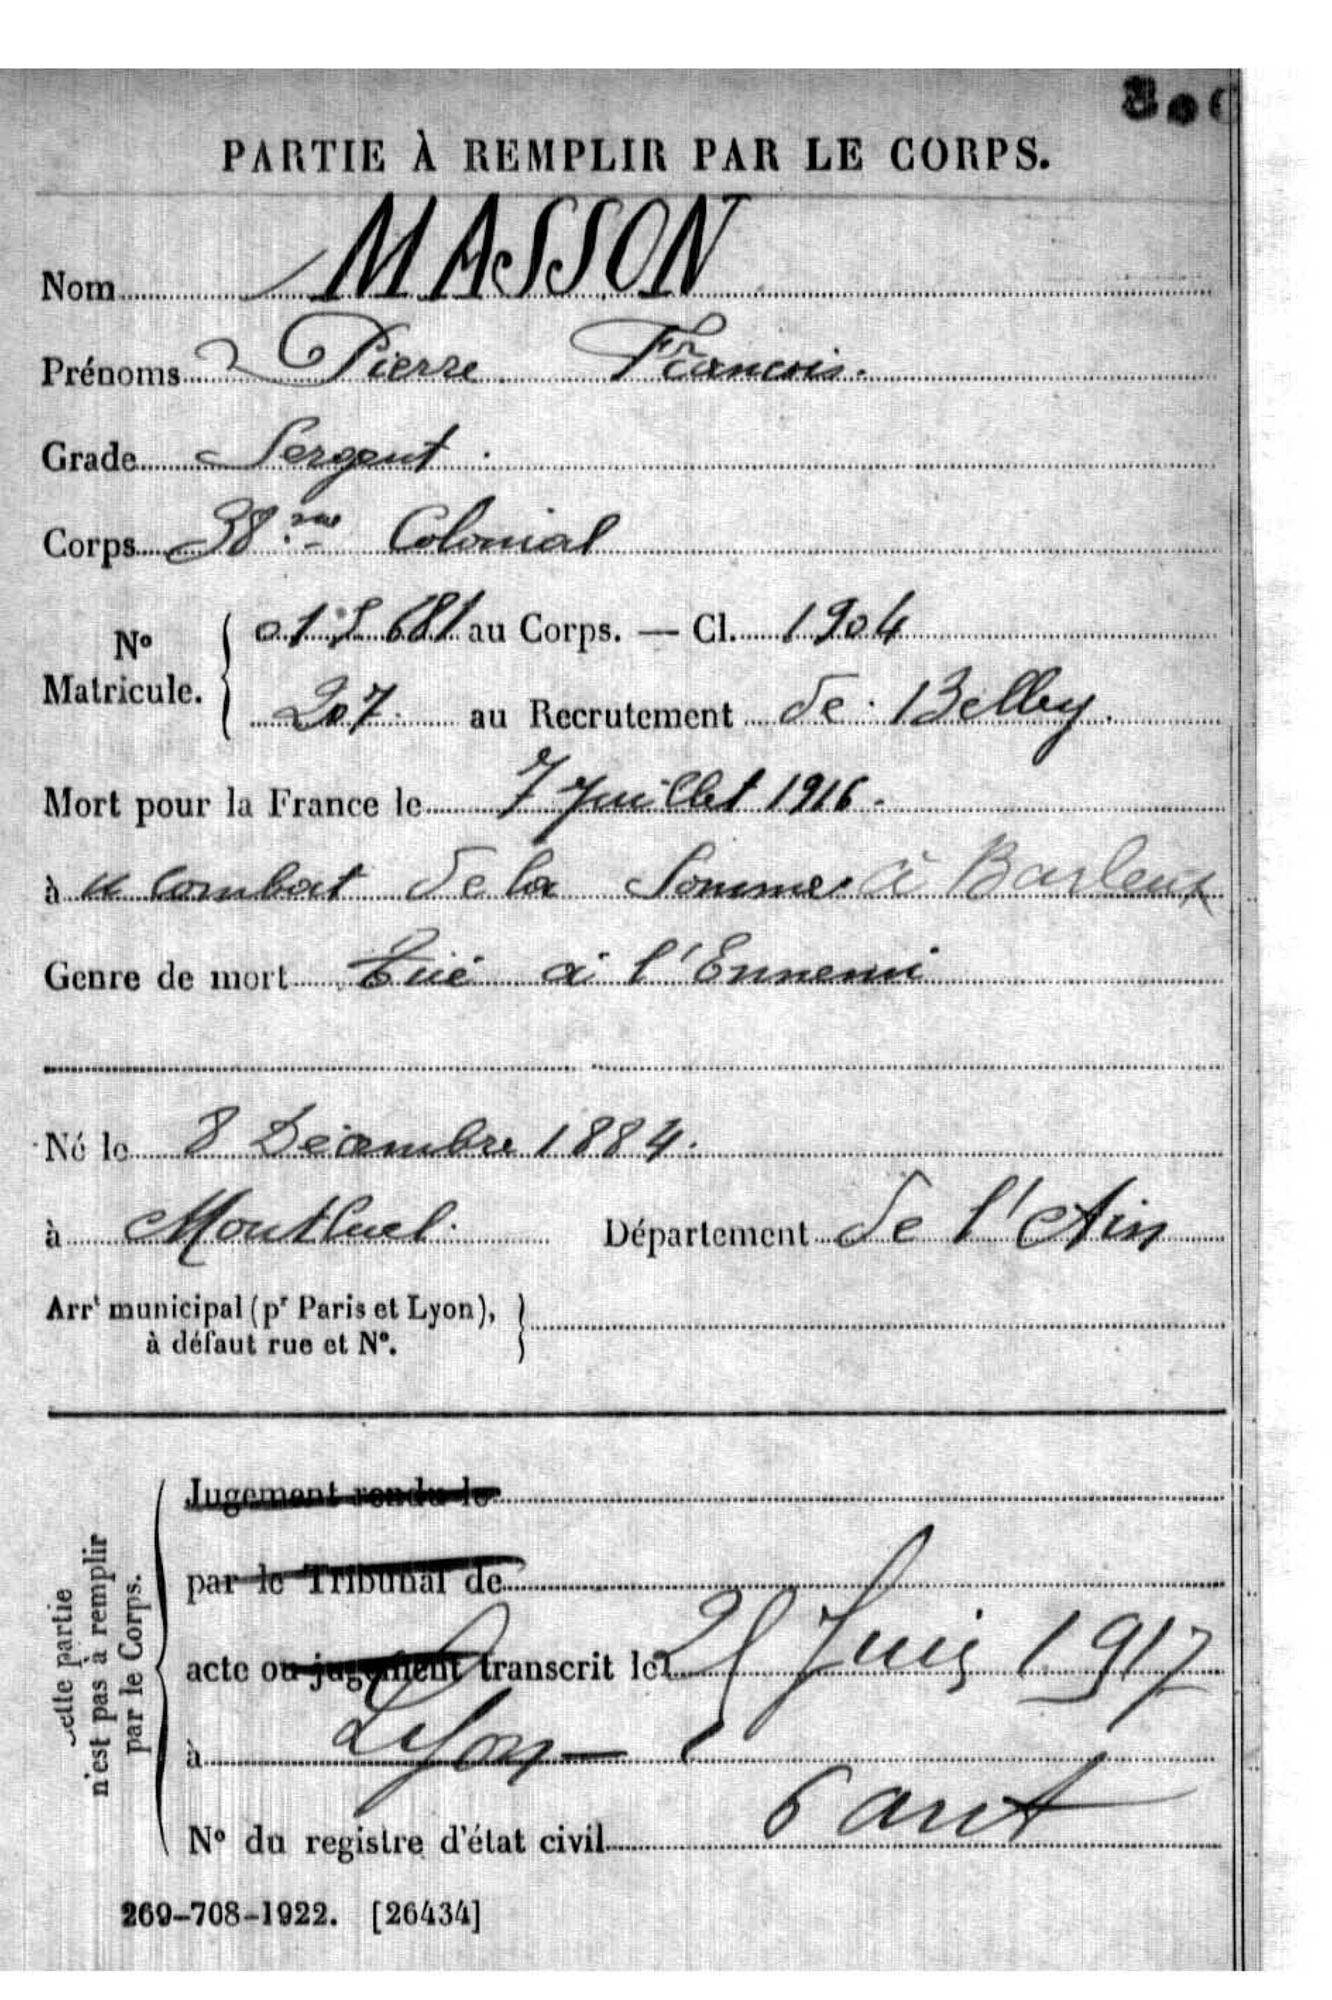 PARTIE À REMPLIR PAR LE CORPS.
Nom MASSON
Prénoms Pierre François.
Grade Sergent.
Corps 38.me Colonial
No Matricule. 681 au Corps. — Cl. 1904
207. au Recrutement de Belley.
Mort pour la France le 7 Juillet 1916.
à combat de la Somme à Barleux
Genre de mort Tué à l'Ennemi
Né le 8 Décembre 1884.
à Montluel. Département de l'Ain
Arrt municipal (pr Paris et Lyon),
à défaut rue et No.
Cette partie
n'est pas à remplir
par le Corps.
Jugement rendu le
par le Tribunal de
acte ou jugement transcrit le Juin 1917
à Lyon —
6 art
No du registre d'état civil
269-708-1922. [26434]